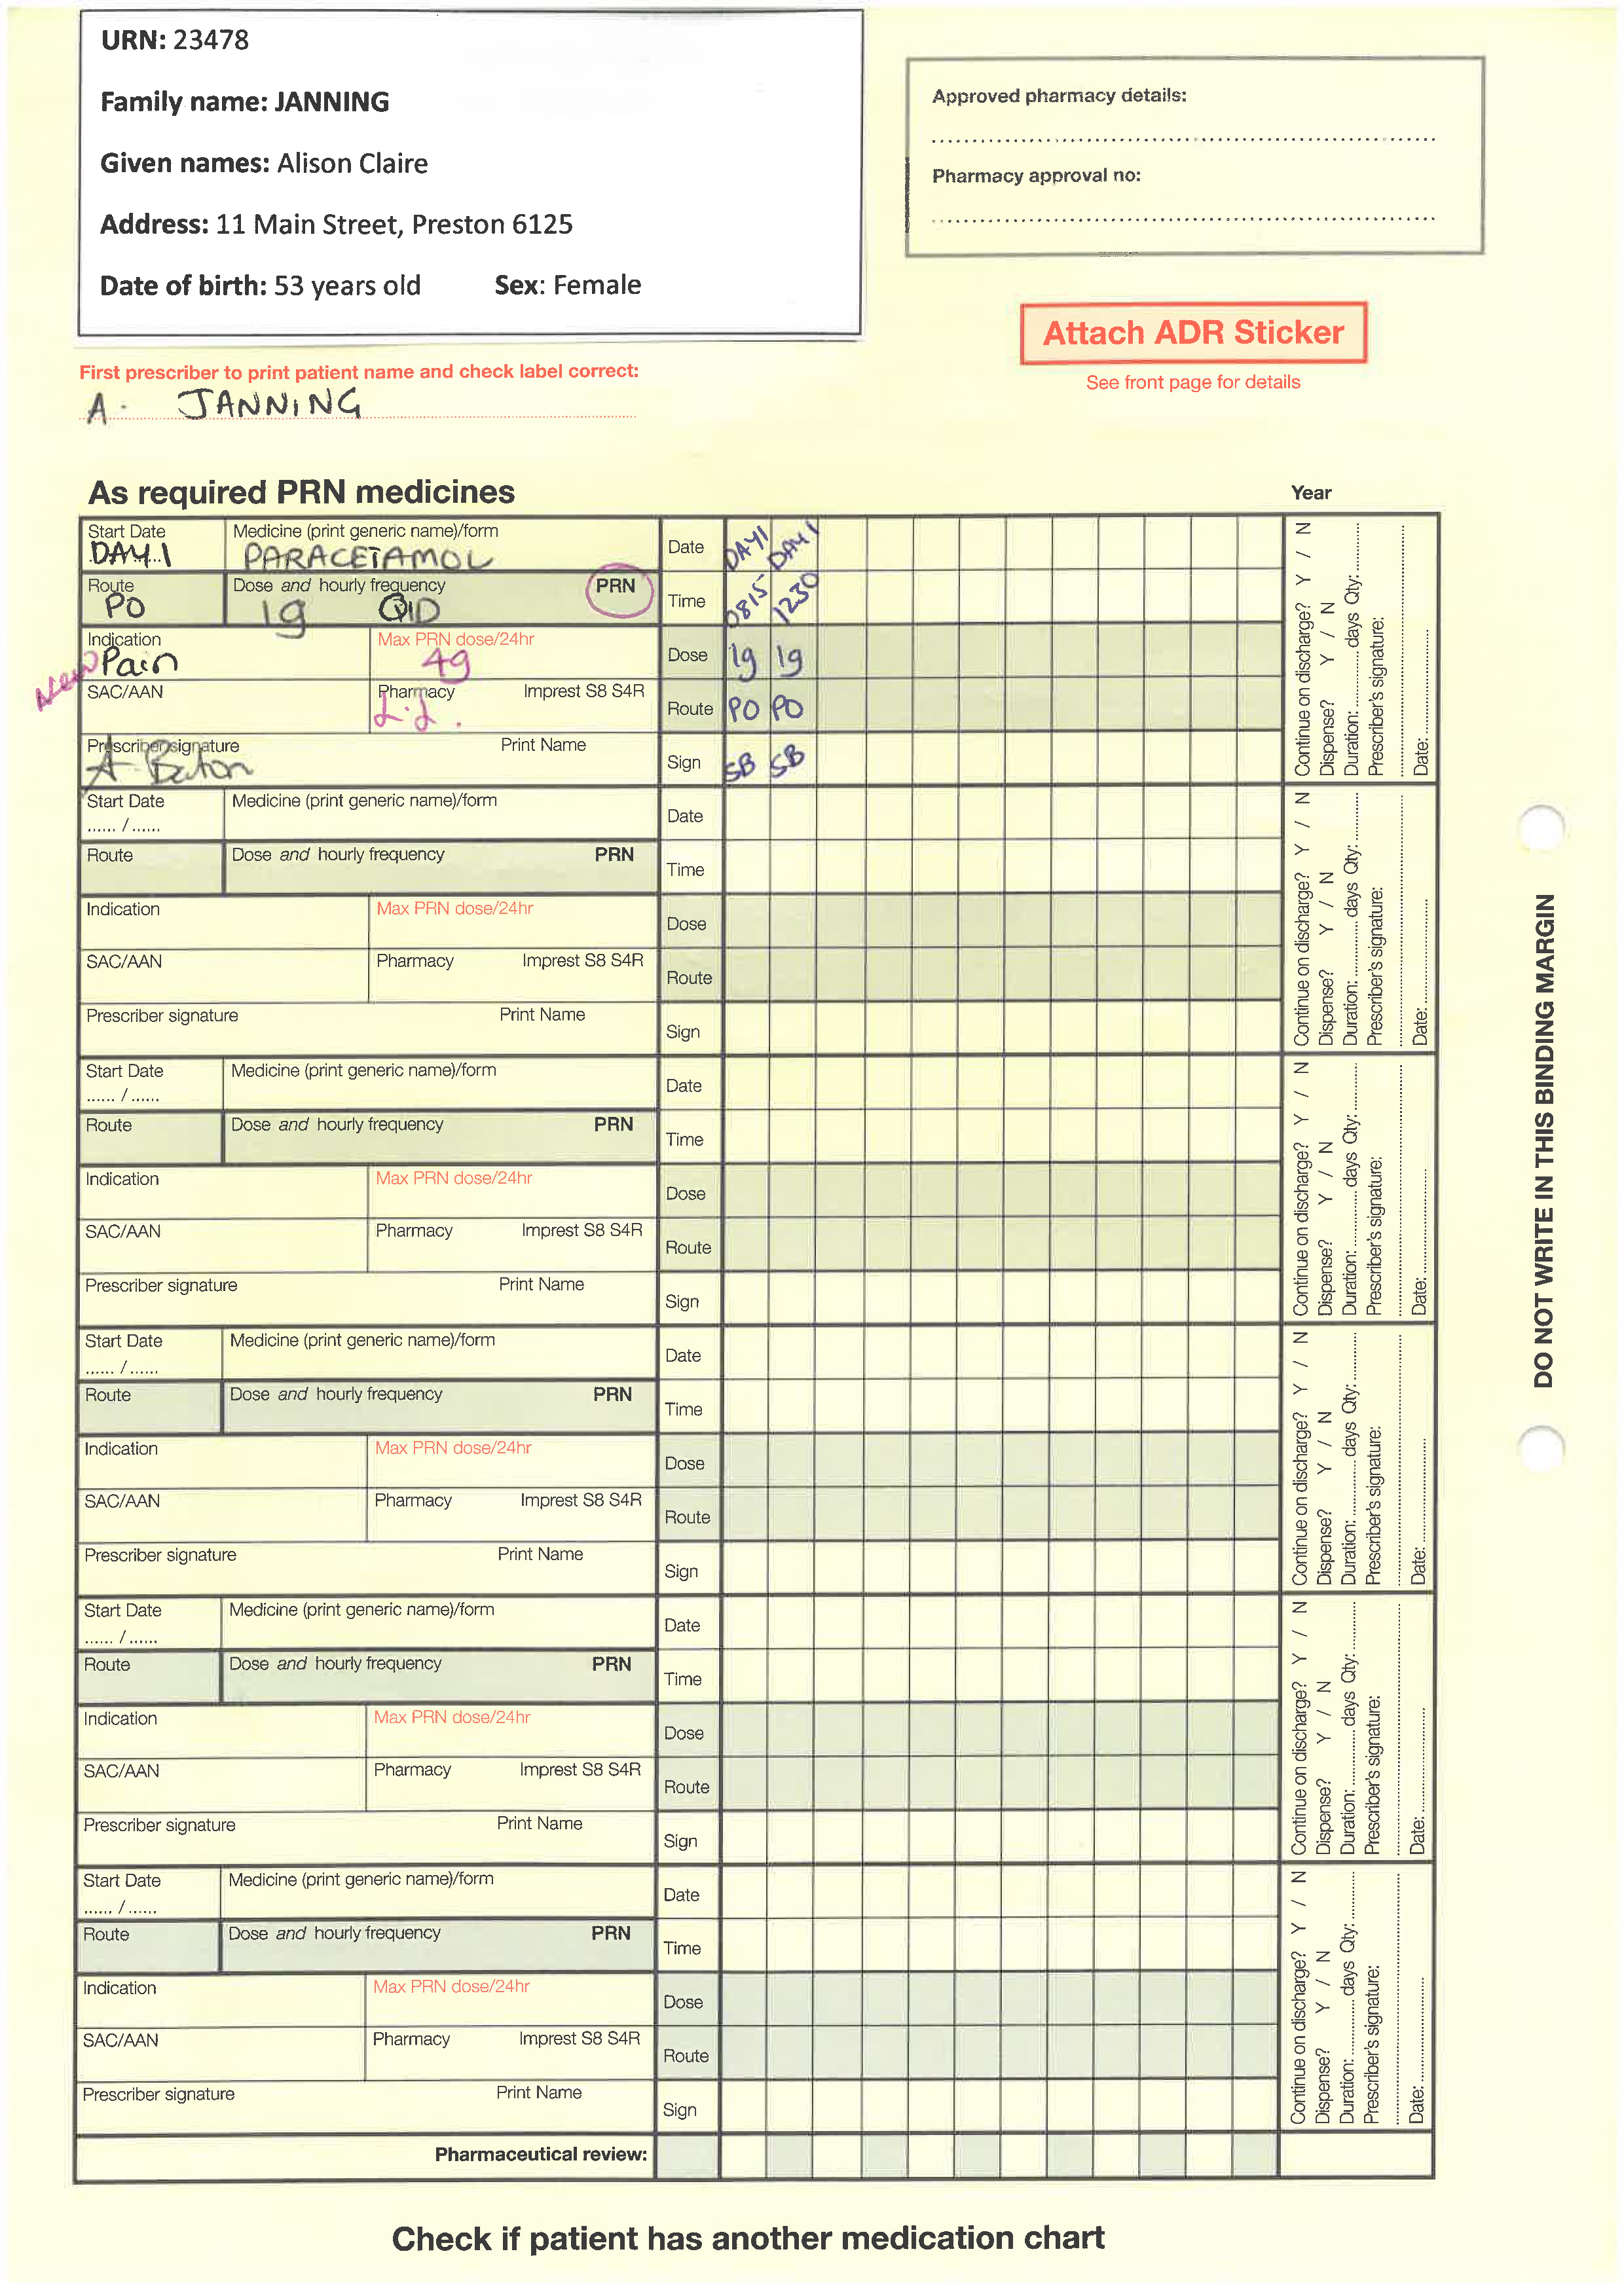 URN: 23478
Family name: JANNING
Given names: Alison Claire
Address: 11 Main Street, Preston 6125
Date of birth: 53 years old Sex: Female
Approved pharmacy details:
Pharmacy approval no:
Attach ADR Sticker
See front page for details
First prescriber to print patient name and check label correct:
A. JANNING
As required PRN medicines
Year
Start Date Medicine (print generic name)/form
DAY 1 PARACETAMOL
Date DAY1 DAY1
Route Dose and hourly frequency PRN
PO 1g QID
Time 0815 1230
Indication Max PRN dose/24hr
New Pain 4g
Dose 1g 1g
SAC/AAN Pharmacy Imprest S8 S4R
L.L.
Route PO PO
Prescriber signature Print Name
A Baton
Sign SB SB
Continue on discharge? Y / N
Dispense? Y / N
Duration: ............ days Qty: ............
Prescriber's signature:
Date: ............
Start Date Medicine (print generic name)/form
...... / ......
Date
Route Dose and hourly frequency PRN
Time
Indication Max PRN dose/24hr
Dose
SAC/AAN Pharmacy Imprest S8 S4R
Route
Prescriber signature Print Name
Sign
Continue on discharge? Y / N
Dispense? Y / N
Duration: ............ days Qty: ............
Prescriber's signature:
Date: ............
Start Date Medicine (print generic name)/form
...... / ......
Date
Route Dose and hourly frequency PRN
Time
Indication Max PRN dose/24hr
Dose
SAC/AAN Pharmacy Imprest S8 S4R
Route
Prescriber signature Print Name
Sign
Continue on discharge? Y / N
Dispense? Y / N
Duration: ............ days Qty: ............
Prescriber's signature:
Date: ............
Start Date Medicine (print generic name)/form
...... / ......
Date
Route Dose and hourly frequency PRN
Time
Indication Max PRN dose/24hr
Dose
SAC/AAN Pharmacy Imprest S8 S4R
Route
Prescriber signature Print Name
Sign
Continue on discharge? Y / N
Dispense? Y / N
Duration: ............ days Qty: ............
Prescriber's signature:
Date: ............
Start Date Medicine (print generic name)/form
...... / ......
Date
Route Dose and hourly frequency PRN
Time
Indication Max PRN dose/24hr
Dose
SAC/AAN Pharmacy Imprest S8 S4R
Route
Prescriber signature Print Name
Sign
Continue on discharge? Y / N
Dispense? Y / N
Duration: ............ days Qty: ............
Prescriber's signature:
Date: ............
Start Date Medicine (print generic name)/form
...... / ......
Date
Route Dose and hourly frequency PRN
Time
Indication Max PRN dose/24hr
Dose
SAC/AAN Pharmacy Imprest S8 S4R
Route
Prescriber signature Print Name
Sign
Continue on discharge? Y / N
Dispense? Y / N
Duration: ............ days Qty: ............
Prescriber's signature:
Date: ............
Pharmaceutical review:
DO NOT WRITE IN THIS BINDING MARGIN
Check if patient has another medication chart